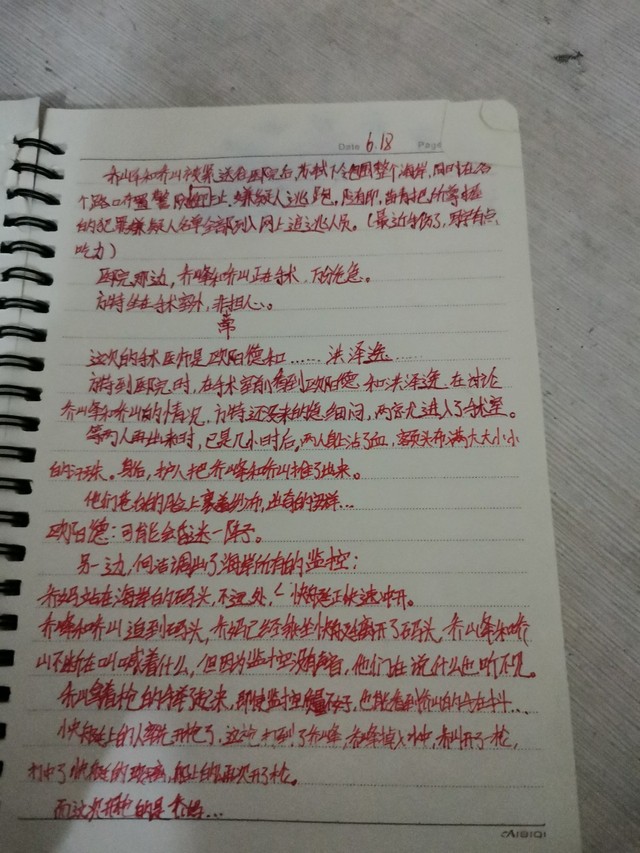 Date 6.18 Page
乔峰和乔山被紧送者医院后，方特下令包围整个海岸，同时在各
个路口布置警力防止嫌疑人逃跑。随即，当青把所掌握
的犯罪嫌疑人名单全部列入网上追逃人员。（最近手伤了，写字有点
吃力）
医院那边，乔峰和乔山正在手术，十分危急。
方特坐在手术室外，非常担心。
这次的手术医师是欧阳德和……洪泽逸……
方特到医院时，在手术室前看到欧阳德和洪泽逸在讨论
乔峰和乔山的情况，方特还没来的急细问，两京尤进入了手术室。
等两人再出来时，已是几小时后，两人身沾了血，额头布满大大小小
的汗珠。身后，护人把乔峰和乔山推了出来。
他们苍白的脸上裹着纱布，出奇的安详…
欧阳德：可能会昏迷一阵子。
另一边，何洁调出了海岸所有的监控：
乔妈站在海岸台的码头，不远处，一快艇正快速冲开。
乔峰和乔山追到码头，乔妈已经乘坐快艇离开了码头，乔山峰和乔
山不断在叫喊着什么，但因为监控没有声音，他们在说什么也听不见。
乔山拿着枪的手举了起来，即使监控质量不好，也能看到乔山的手在抖…
快艇上的人率先开枪了，这枪打到了乔峰，乔峰掉入水中，乔山开了一枪，
打中了快艇的玻璃，船上的人再次开了枪。
而这次开枪的是乔妈…